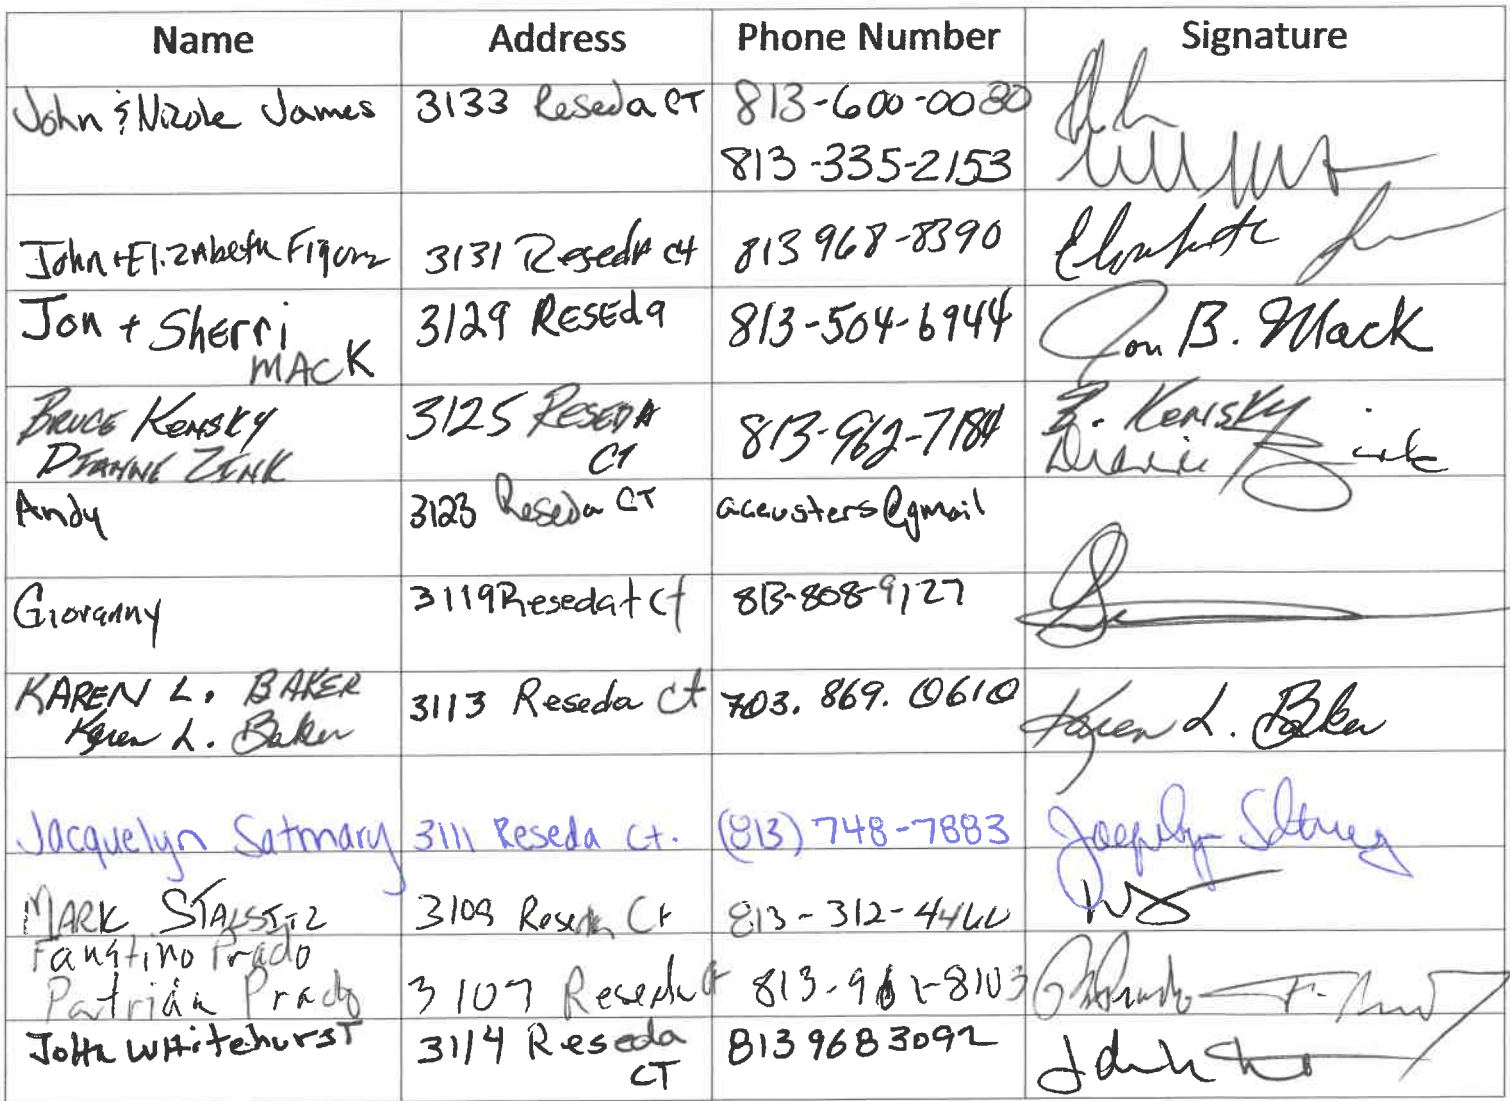 Name Address Phone Number Signature
John & Nizole James 3133 Reseda CT 813-600-0030
813-335-2153
John + Elizabeth 3131 Reseda ct 813 968-8390 Elizabeth
Jon + Sherri 3129 RESEda 813-504-6944 Jon B. Mack
MACK
BRUCE KENSKY 3125 RESEDA 813-962-7184 B. KENSKY
DIANNE ZINK CT Dianne Zink
Andy 3123 Reseda CT @gmail
Giovanny 3119 Resedat Ct 813-808-9127
KAREN L. BAKER 3113 Reseda Ct 703. 869. 0610 Karen L. Baker
Karen L. Baker
Jacquelyn Satmary 3111 Reseda Ct. (813) 748-7883 Jacquelyn Satmary
MARK 3109 Reseda Ct 813-312-4466
Faustino Prado
Prado 3107 Reseda Ct
John WHitehursT 3114 Reseda 813 968 3092
CT